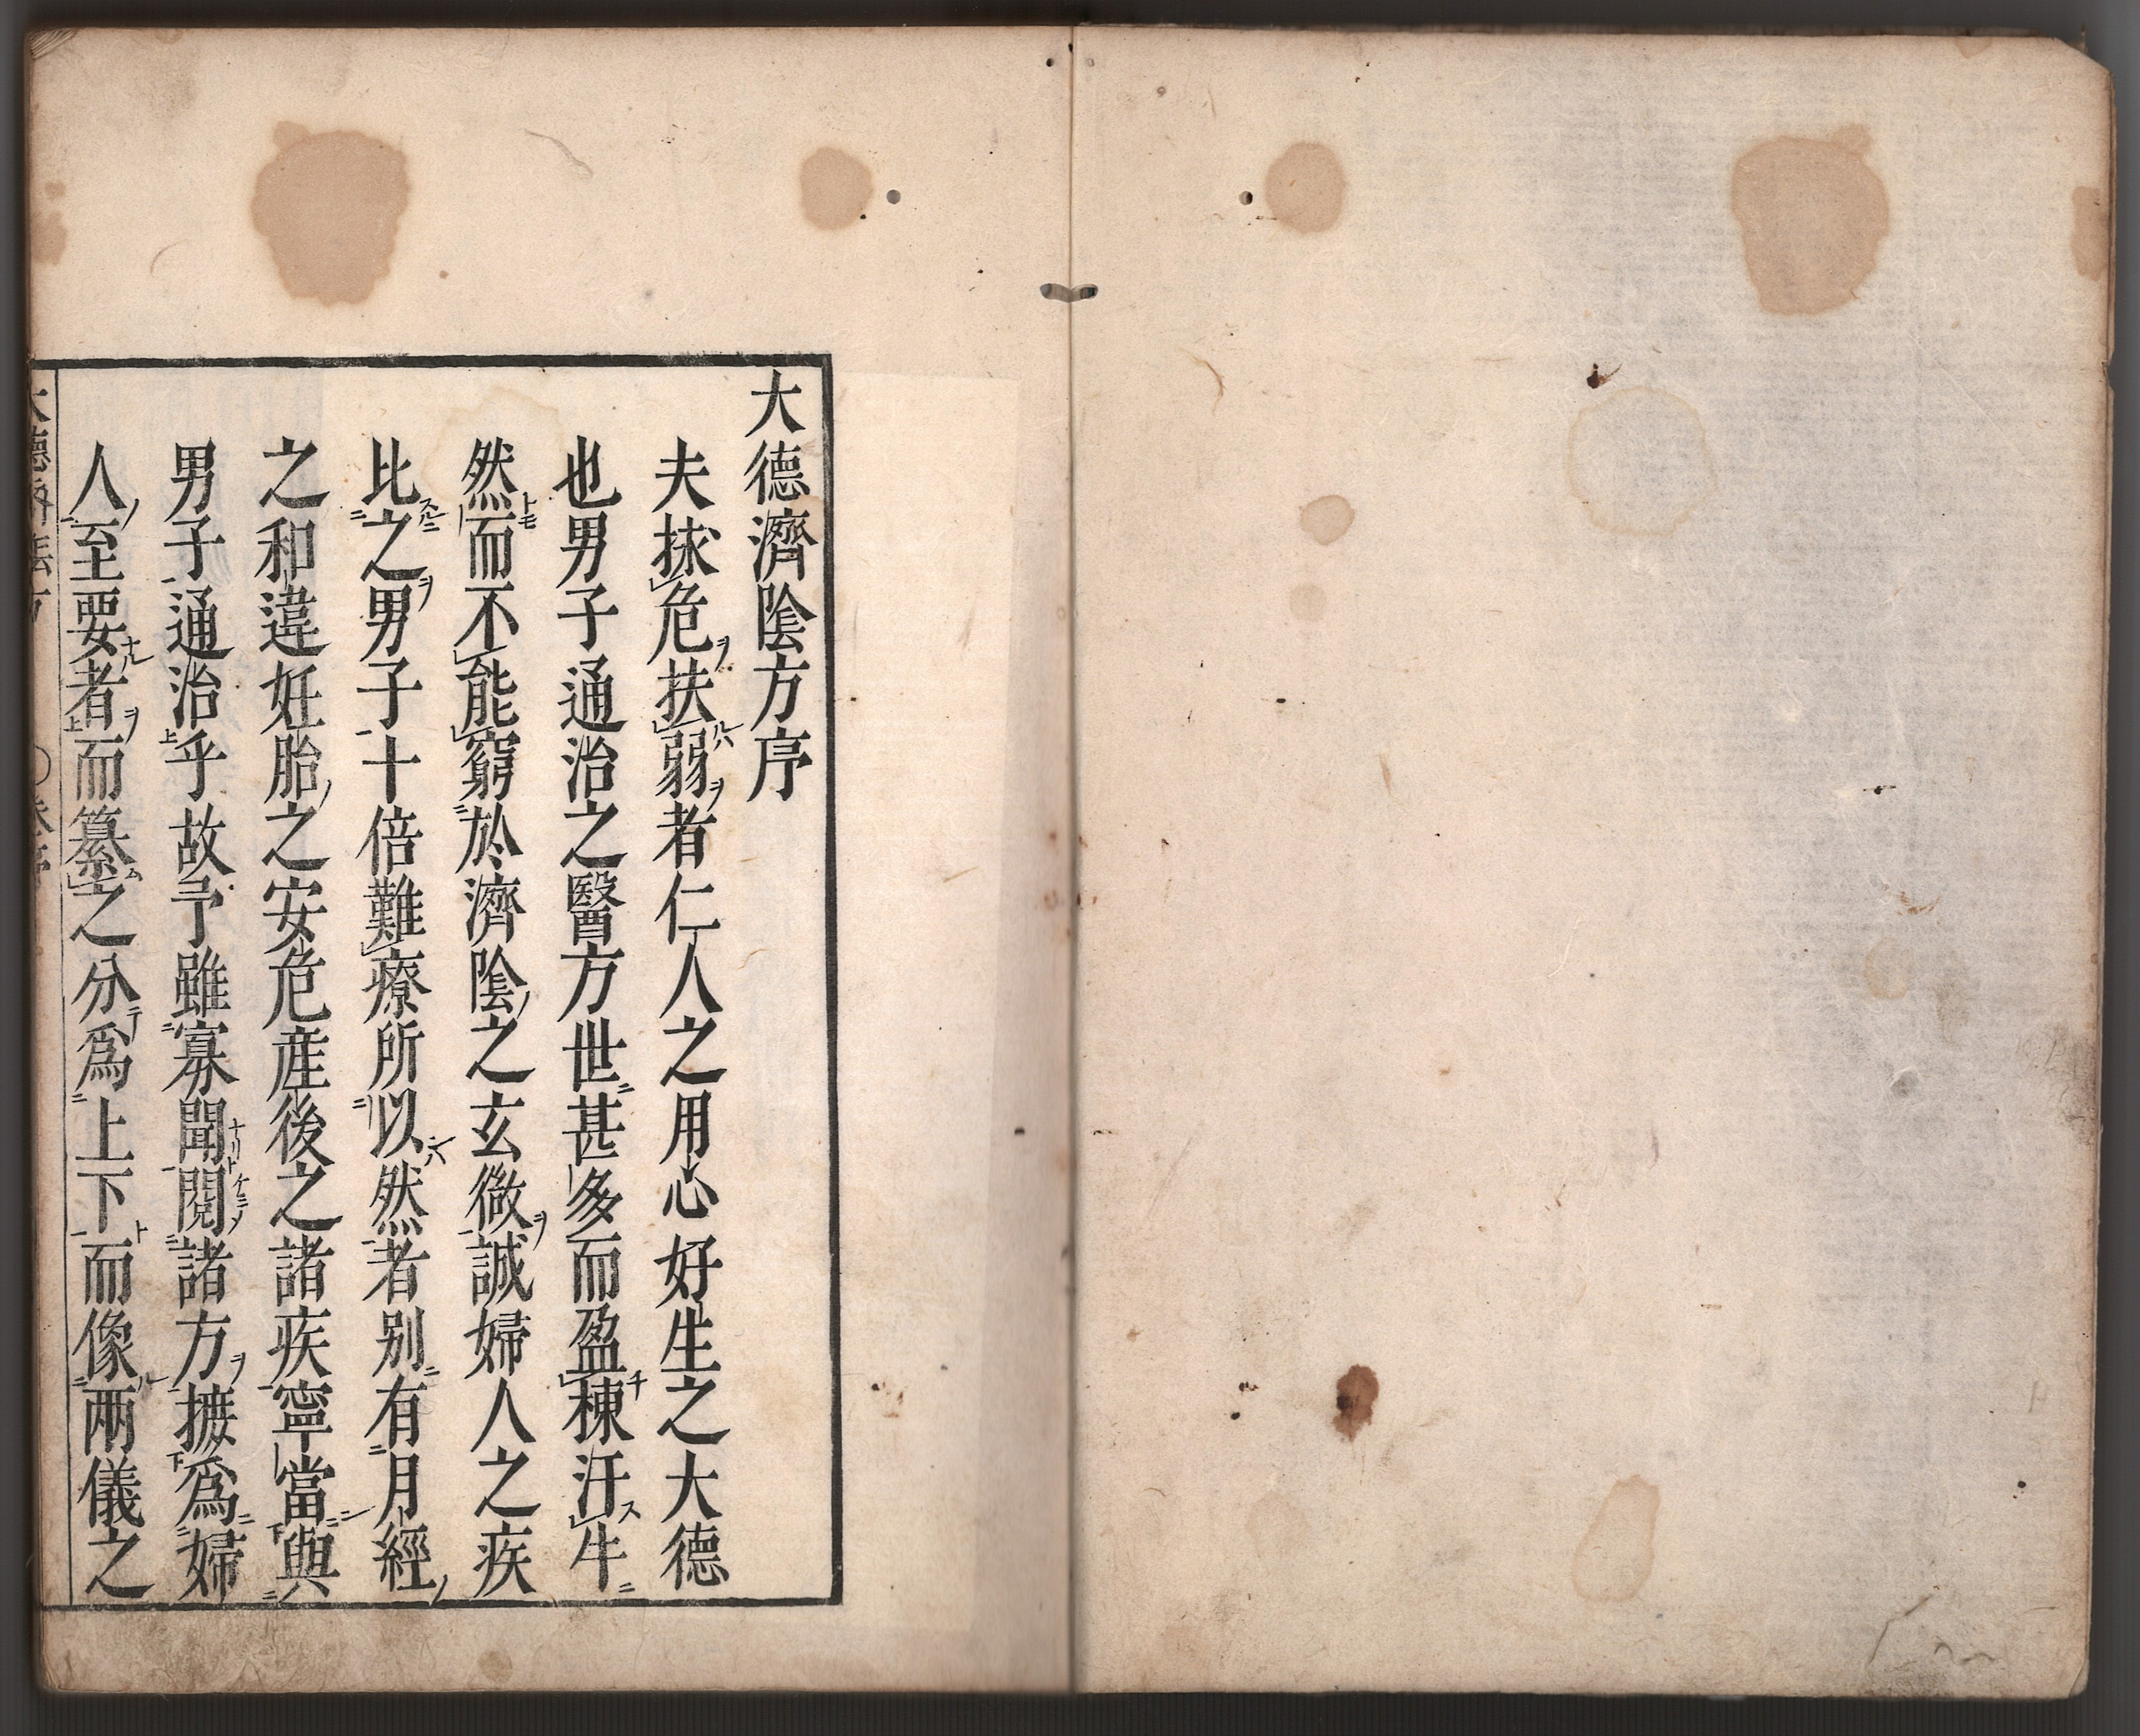 大德濟陰方序
夫捄危扶弱者仁人之用心好生之大德
也男子通治之醫方世甚多而盈棟汗牛
然而不能窮於濟陰之玄微誠婦人之疾
比之男子十倍難療所以然者別有月經
之和違妊胎之安危産後之諸疾寧當與
男子通治乎故予雖寡聞閱諸方摭爲婦
人至要者而纂之分爲上下而像兩儀之